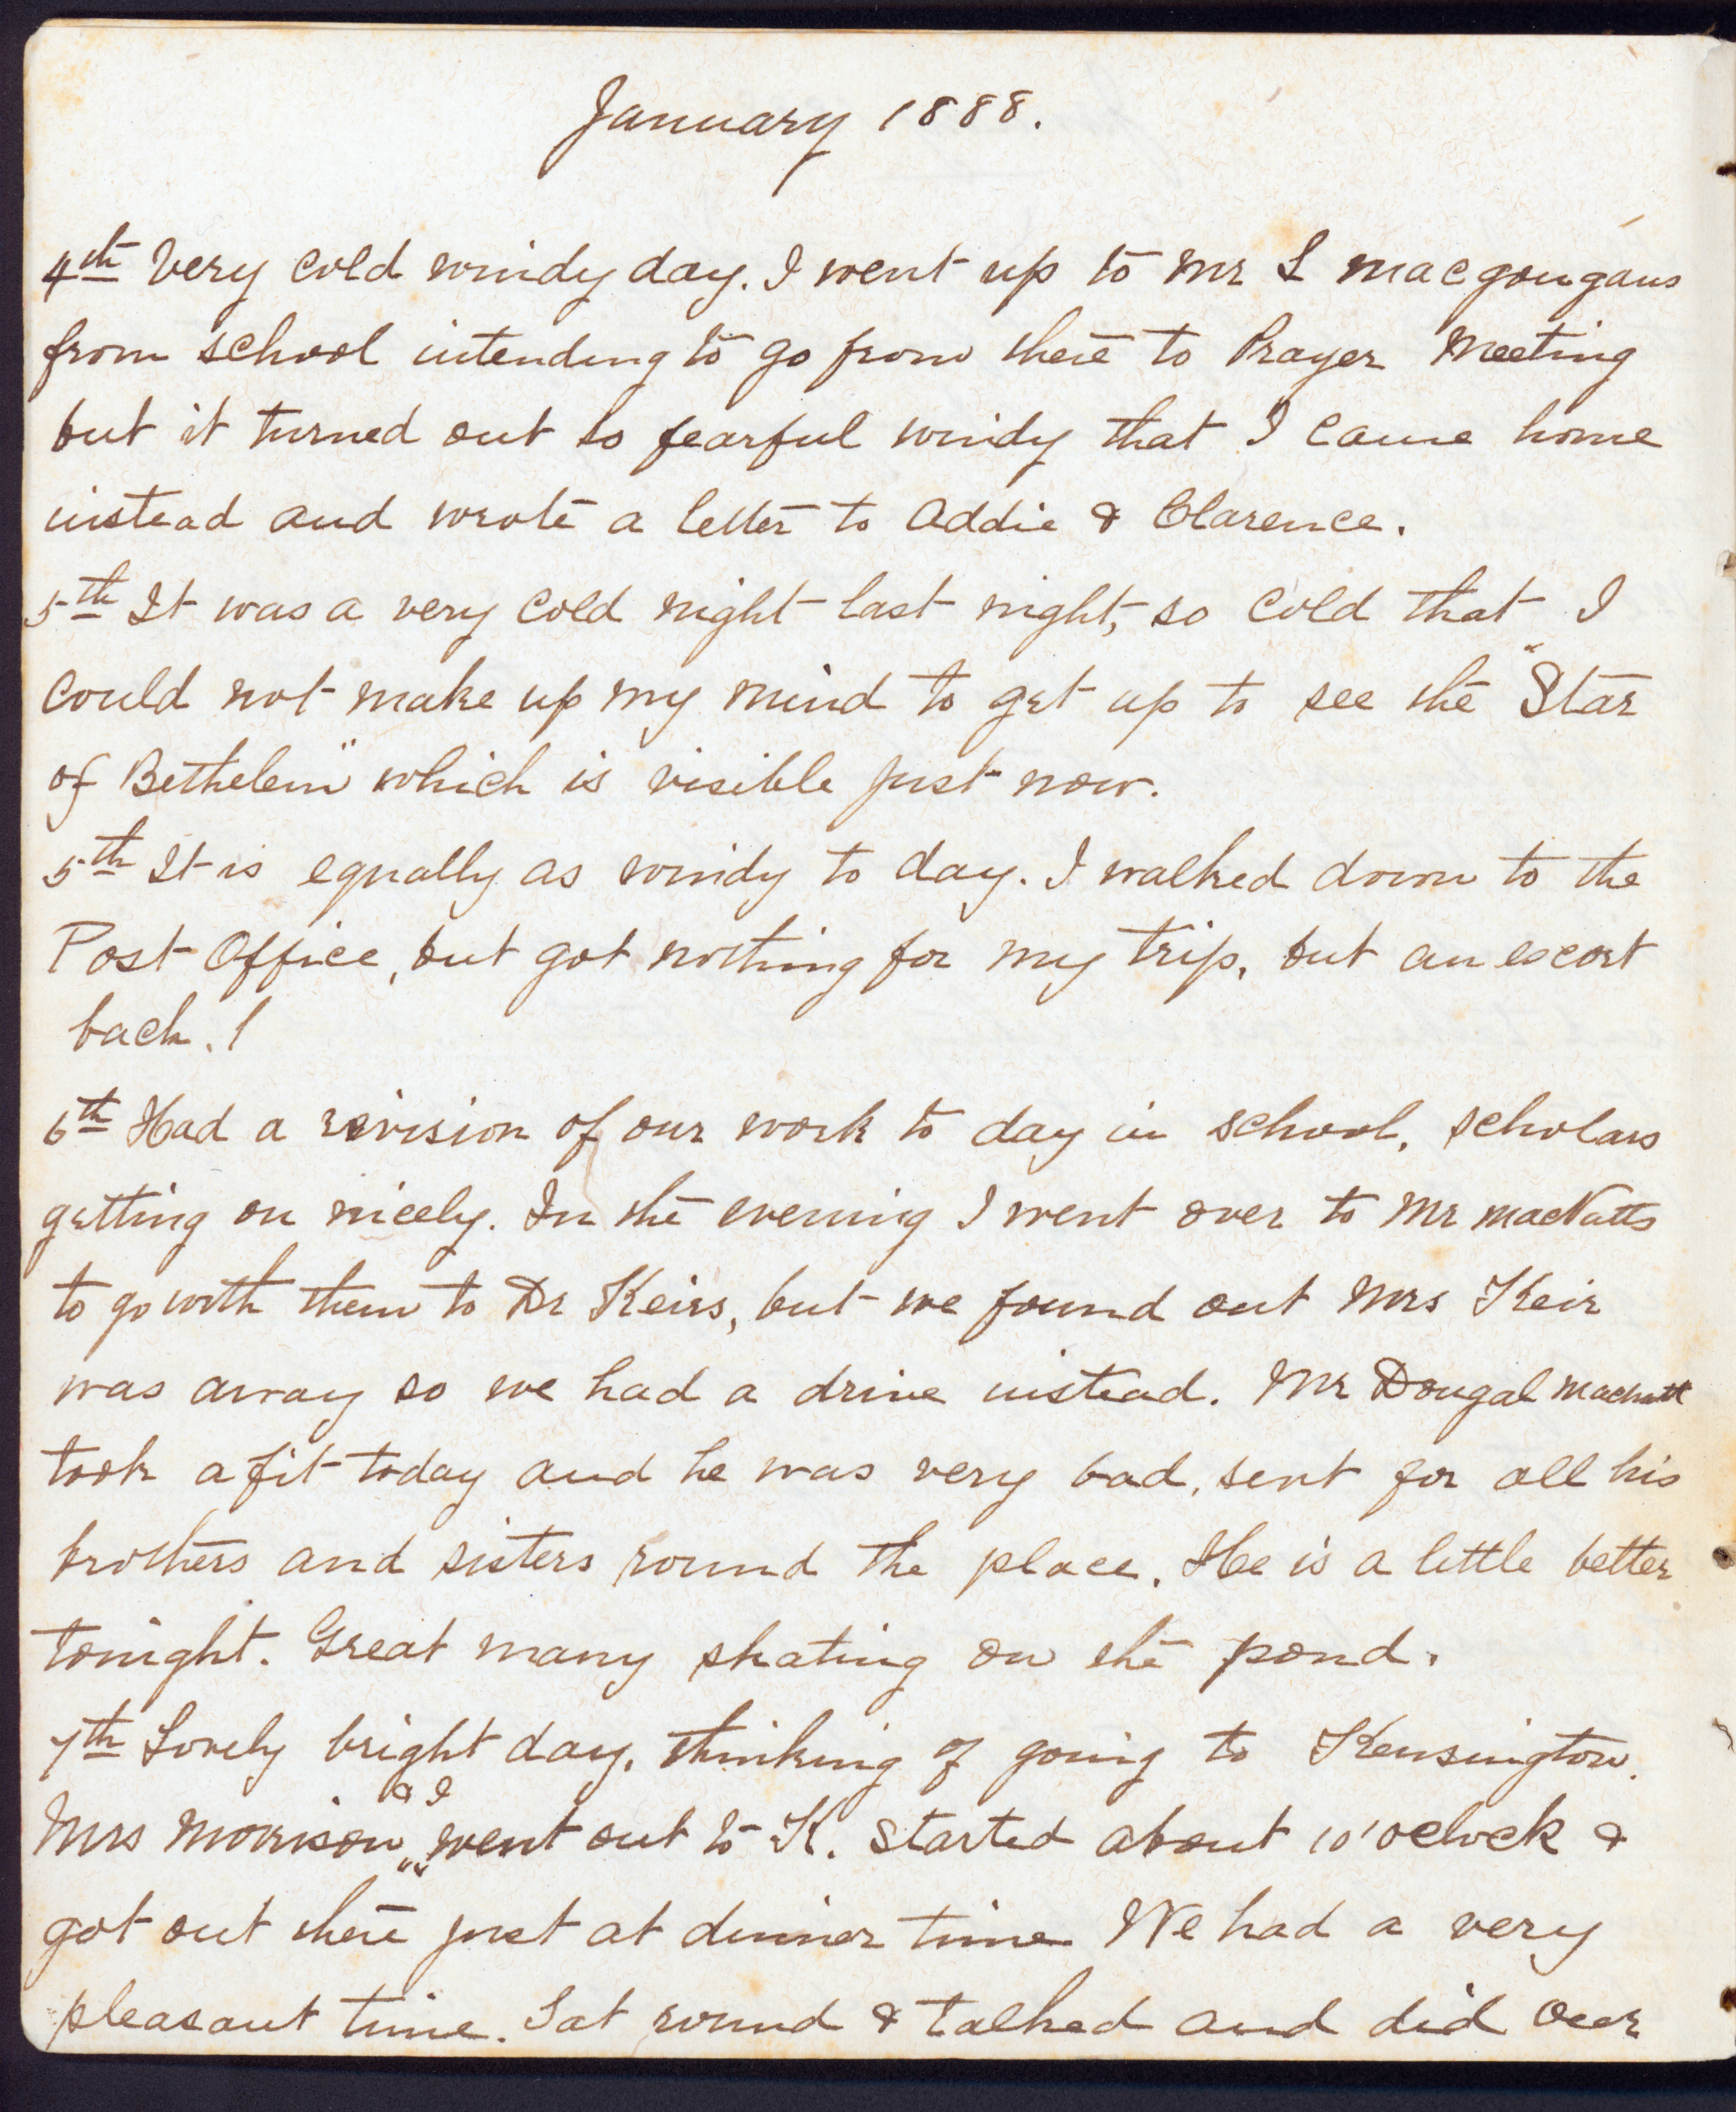 January 1888.
4th Very cold windy day. I went up to Mr L MacGougans
from school intending to go from there to Prayer Meeting
but it turned out so fearful windy that I came home
instead and wrote a letter to Addie & Clarence.
5th It was a very cold night last night, so cold that I
could not make up my mind to get up to see the "Star
of Bethelem" which is visible just now.
5th It is equally as windy to day. I walked down to the
Post Office, but got nothing for my trip, but an escort
back. !
6th Had a revision of our work to day in school, scholars
getting on nicely. In the evening I went over to Mr MacNutts
to go with them to Dr Keirs, but we found out Mrs Keir
was away so we had a drive instead. Mr Dougal MacNutt
took a fit today and he was very bad, sent for all his
brothers and sisters round the place. He is a little better
tonight. Great many skating on the pond.
7th Lovely bright day, thinking of going to Kensington.
Mrs Morrison & I went out to K. started about 10'oclock &
got out there just at dinner time We had a very
pleasant time. Sat round & talked and did our